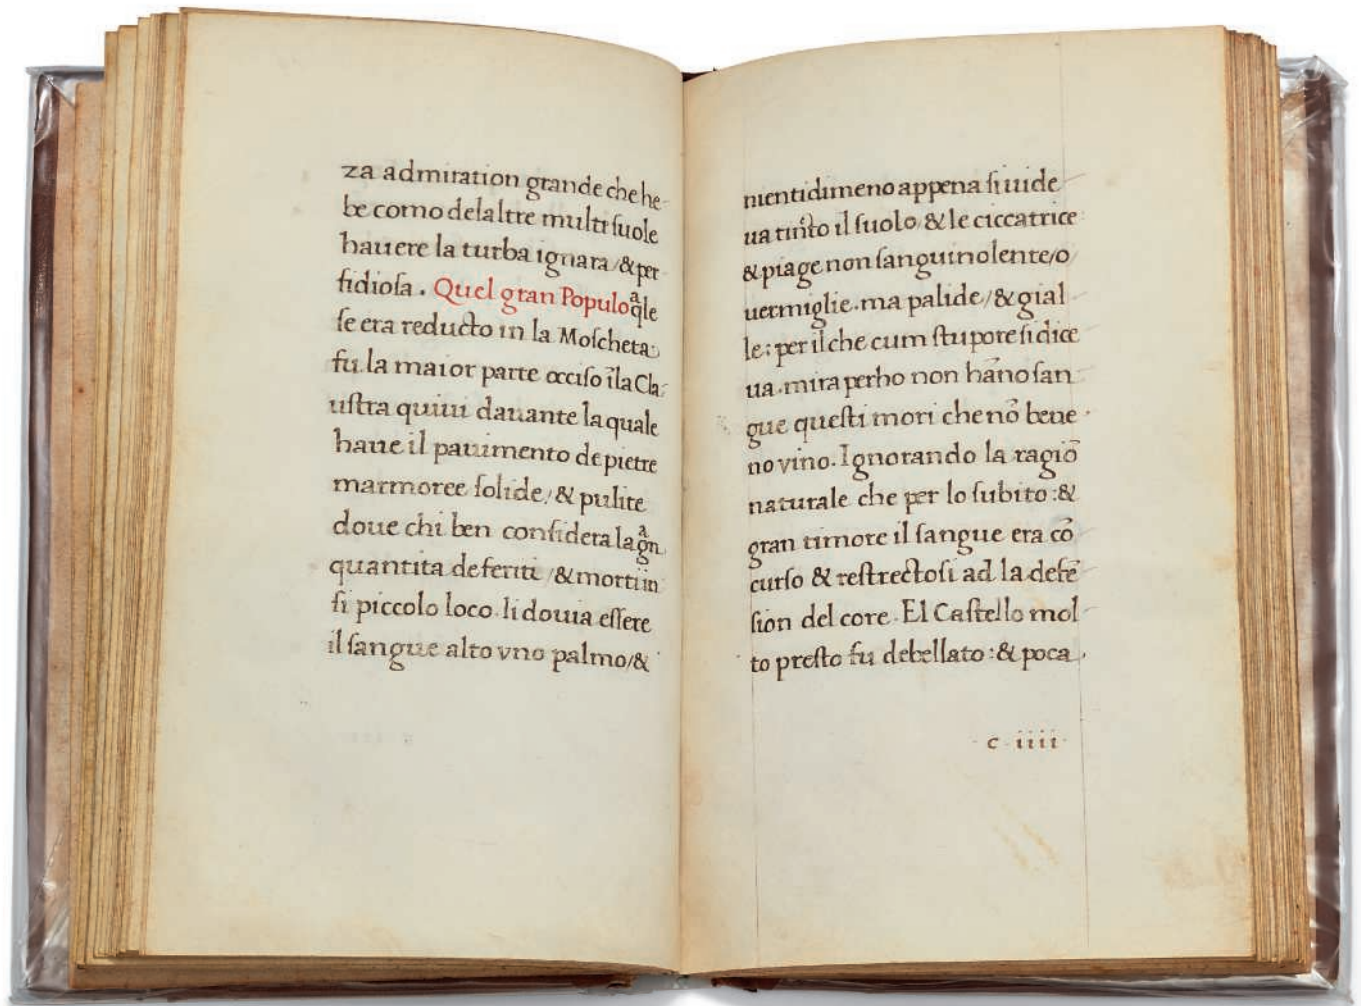 za admiration grande che he
be como delaltre multi ſuole
hauere la turba ignara/& per
fidioſa. Quel gran Populo q̃le
ſe era reducto in la Moſcheta:
fu la maior parte occiſo ĩla Cla
uſtra quiui dauante la quale
haue il pauimento de pietre
marmoree ſolide/& pulite
doue chi ben conſidera la gñ
quantita de feriti/& morti in
ſi piccolo loco. li douia eſſere
il ſangue alto vno palmo/&
nientidimeno appena ſi uide
ua tinto il ſuolo/& le ciccatrice
& piage non ſanguinolente/o
uermiglie. ma palide/& gial
le: per il che cum ſtupore ſi dice
ua. mira perho non hãno ſan
gue queſti mori che nõ beue
no vino. Ignorando la ragiõ
naturale che per lo ſubito:&
gran timore il ſangue era cõ
curſo & reſtrectoſi ad la defẽ
ſion del core. El Caſtello mol
to preſto fu debellato:& poca
c iiii